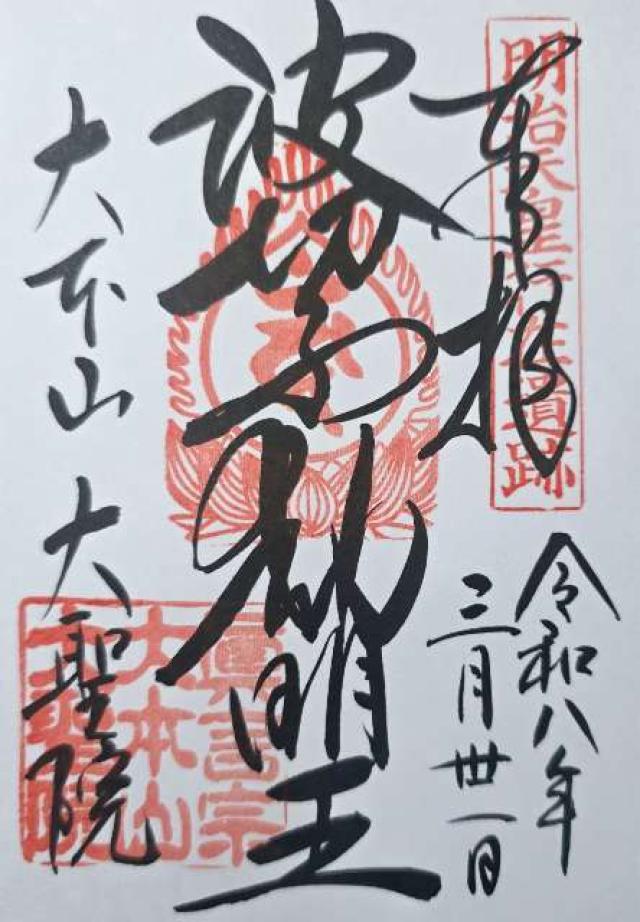 明治天皇行在遺跡
奉拝
令和八年
三月卅一日
波切不動明王
大本山 大聖院
眞言宗
大本山
大聖院